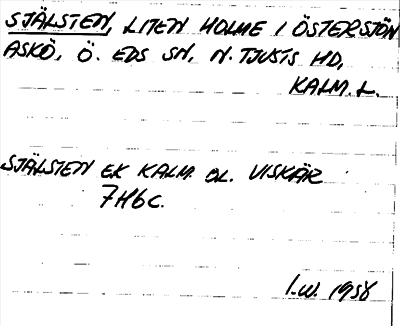 SJÄLSTEN, LITEN HOLME I ÖSTERSJÖN
ASKÖ, Ö. EDS SN, N. TJUSTS HD,
KALM. L.
SJÄLSTEN EK KALM. BL. VISKÄR
7H6c.
I.W. 1958